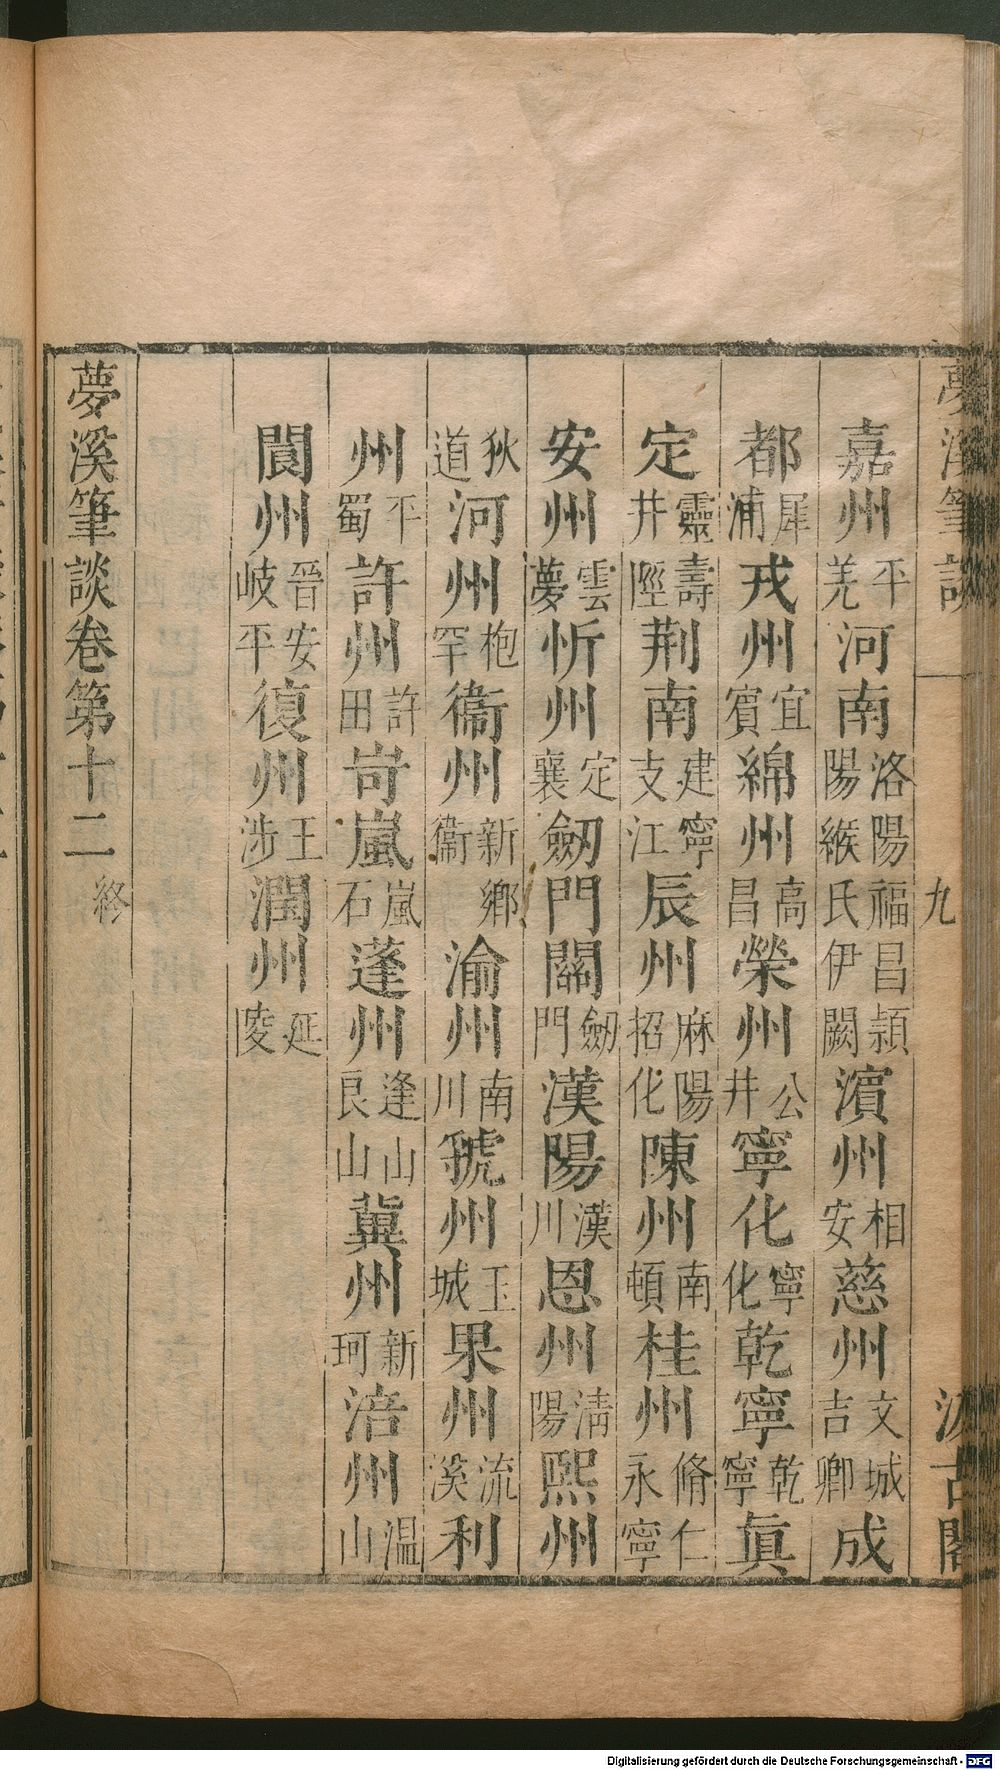 夢溪筆談 九 汲古閣
嘉州平羌河南洛陽福昌潁陽緱氏伊闕濱州相安慈州文城吉鄉成
都犀浦戎州宜賓綿州高昌榮州公井寧化寧化乾寧乾寧眞
定靈壽井陘荆南建寧支江辰州麻陽招化陳州南頓桂州脩仁永寧
安州雲夢忻州定襄劒門關劒門漢陽漢川恩州清陽熙州
狄道河州枹罕衞州新鄉衞渝州南川虢州玉城果州流溪利
州平蜀許州許田岢嵐嵐石蓬州逢山良山冀州新珂涪州温山
閬州晉安岐平復州王涉潤州延陵
夢溪筆談卷第十二終
Digitalisierung gefördert durch die Deutsche Forschungsgemeinschaft - DFG